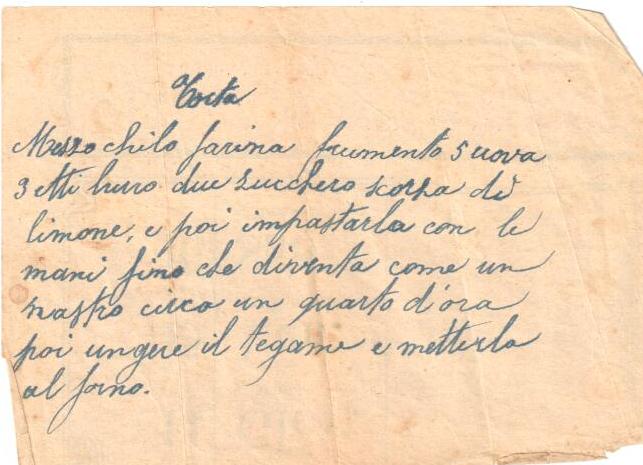 Torta
Mezzo chilo farina frumento 5 uova
3 etti burro due zucchero scorza di
limone, e poi impastarla con le
mani fino che diventa come un
nastro circa un quarto d'ora
poi ungere il tegame e metterla
al forno.